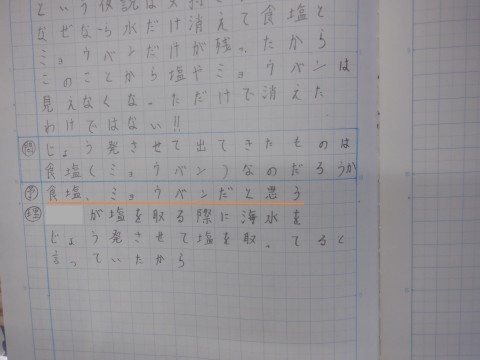 という仮説は支持
なぜなら水だけ消えて食塩と
ミョウバンだけが残ったから
このことから塩やミョウバンは
見えなくなっただけで消えた
わけではない!!
問 じょう発させて出てきたものは
食塩(ミョウバン)なのだろうか
予 食塩、ミョウバンだと思う
理 が塩を取る際に海水を
じょう発させて塩を取ってると
言っていたから